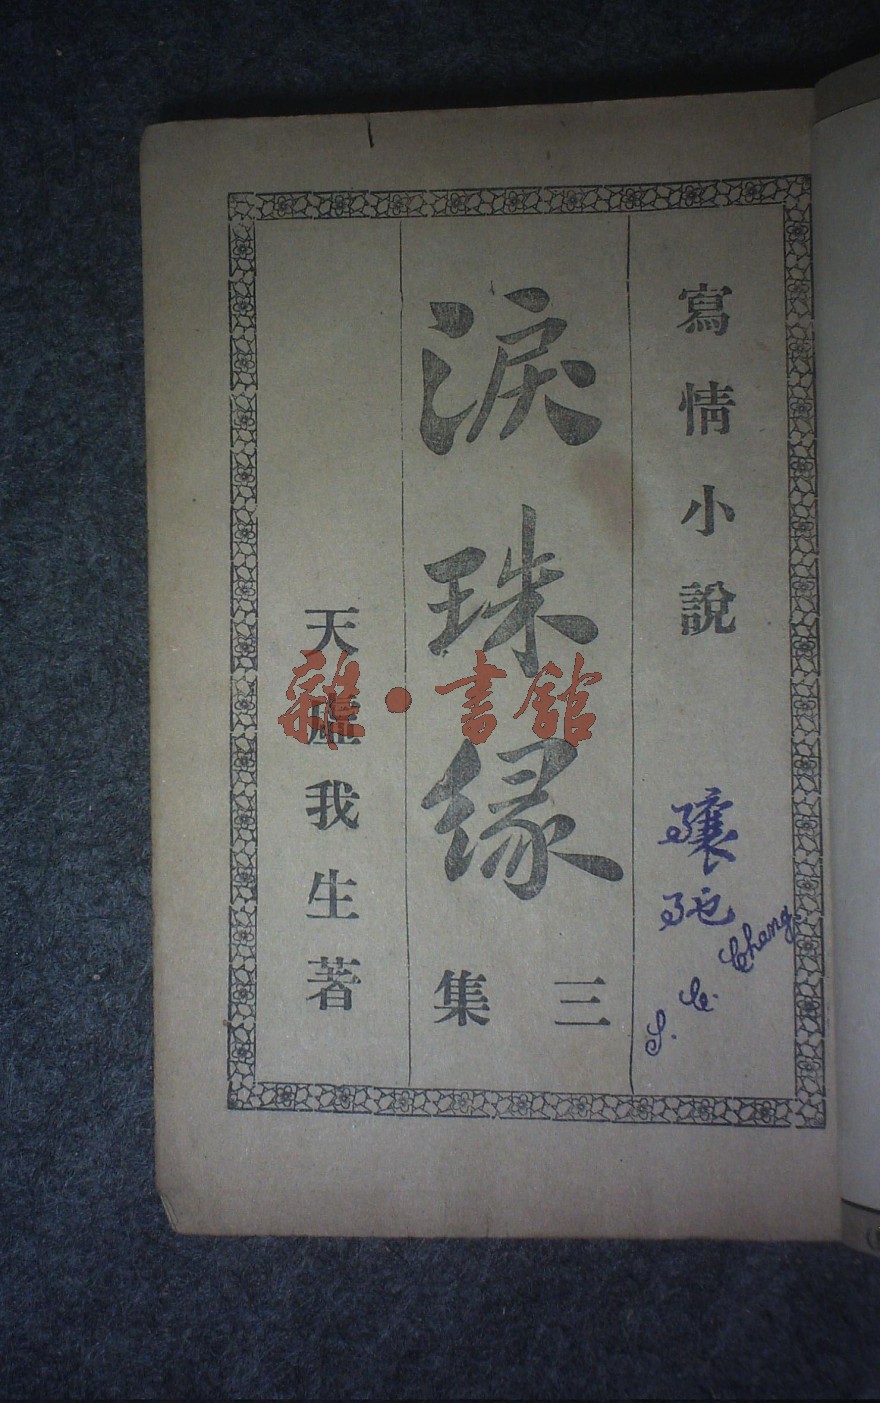 寫情小說
淚珠緣
三集
天虛我生著
雜·書館
S. C. Chang